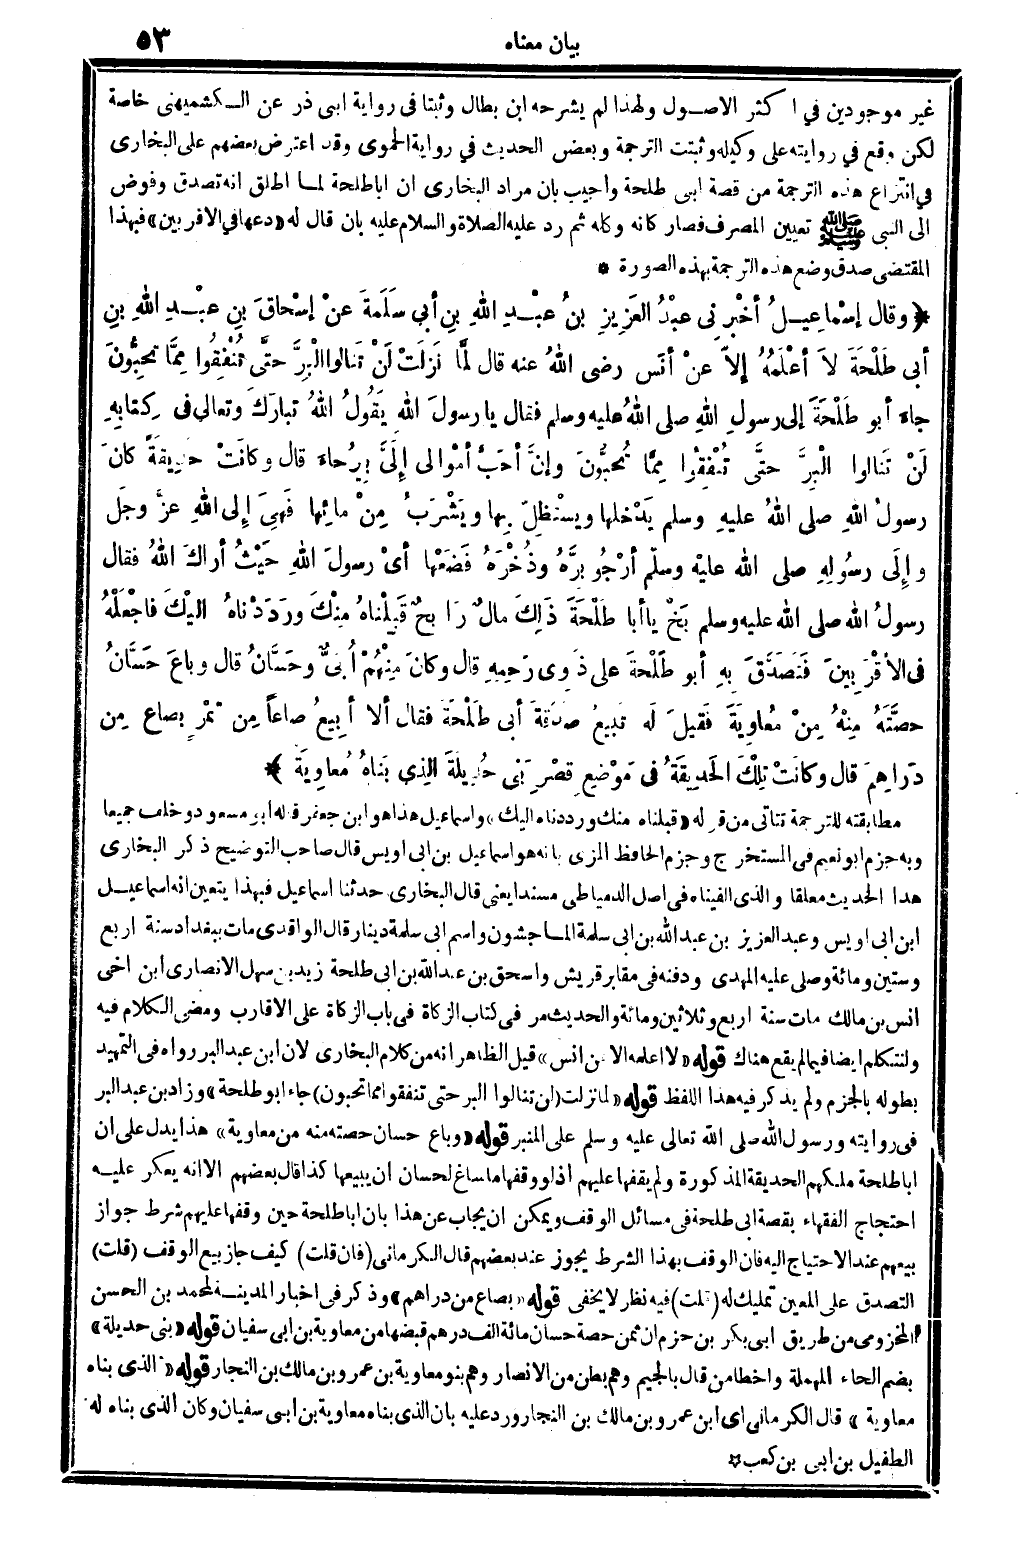 بيان معناه ٥٣
غير موجودين في اكثر الاصول ولهذا لم يشرحه ابن بطال وثبتا في رواية ابى ذر عن الكشميهنى خاصة
لكن وقع في روايته على وكيله وثبتت الترجمة وبعض الحديث في رواية الحموى وقد اعترض بعضهم على البخارى
في انتزاع هذه الترجمة من قصة ابى طلحة واجيب بان مراد البخارى ان اباطلحة لما اطلق انه تصدق وفوض
الى النبى ﷺ تعيين المصرف فصار كانه وكله ثم رد عليه الصلاة والسلام عليه بان قال له «دعها في الاقربين» فبهذا
المقتضى صدق وضع هذه الترجمة بهذه الصورة *
﴿ وقال إِسْماعِيلُ أخْبَرَنِى عبْدُ العَزِيزِ بنُ عبْدِ اللهِ بنِ أبي سَلَمَةَ عنْ إسْحاقَ بنِ عبْدِ اللهِ بنِ
أبى طَلْحَةَ لاَ أعْلَمُهُ إلاّ عنْ أنَس رضى اللهُ عنه قال لَمَّا نَزلَتْ لَنْ تَنالوا الْبِرَّ حتَّى تُنْفِقُوا مِمَّا تحِبُّونَ
جاءَ أبو طَلْحَةَ إلى رسولِ اللهِ صلى اللهُ عليه وسلم فقال يا رسولَ اللهِ يَقُولُ اللهُ تبارَكَ وتعالى فى كِتابِهِ
لَنْ تَنالوا الْبِرَّ حتَّى تُنْفِقُوا مِمَّا تُحبُّونَ وإنَّ أحَبَّ أمْوالى إلَىَّ بِيرُحاءَ قال وكانَتْ حَدِيقَةً كانَ
رسولُ اللهِ صلى اللهُ عليهِ وسلم يَدْخلها ويسْتظِلُّ بِها ويَشْرَبُ مِنْ مائِها فَهِىَ إلى اللهِ عزَّ وجَلَّ
وإلَى رسُولِهِ صلى الله عليْه وسلّم أرْجُو بِرَّهُ وذُخْرَهُ فَضَعْها أىْ رسولَ اللهِ حَيْثُ أراكَ اللهُ فقال
رسولُ الله صلى الله عليه وسلم بَخْ يا أبا طَلْحَةَ ذَلِكَ مالٌ رَابحٌ قَبِلْناهُ مِنْكَ ورَدَدْناهُ اليْكَ فاجْعَلْهُ
فى الأقْرَبِينَ فَتَصَدَّقَ بِهِ أبو طَلْحةَ على ذَوِى رَحِمِهِ قال وكانَ مِنْهُمْ أُبَىٌّ وحَسَّانُ قال وباعَ حَسَّانُ
حصَّتَهُ مِنْهُ مِنْ مُعاوِيَةَ فَقِيلَ لَه تَبِيعُ صدَقةَ أبى طَلْحَةَ فقال ألا أبِيعُ صاعاً مِن تمْرٍ بِصاع مِن
دَراهِمَ قال وكانَتْ تِلْكَ الحَدِيقَةُ فى مَوْضِعِ قَصْرِ بَنِى حُدِيلَةَ الذِي بَناهُ مُعاوِيَةُ ﴾ *
مطابقته للترجمة تتأتى من قوله «قبلناه منك ورددناه اليك» واسماعيل هذا هو ابن جعفر قاله ابو مسعود وخلف جميعا
وبه جزم ابو نعيم فى المستخرج وجزم الحافظ المزى بانه هو اسماعيل بن ابى اويس قال صاحب التوضيح ذكر البخارى
هذا الحديث معلقا والذى الفيناه فى اصل الدمياطى مسندا يعنى قال البخارى حدثنا اسماعيل فبهذا يتعين انه اسماعيل
ابن ابى اويس وعبد العزيز بن عبد الله بن ابى سلمة الماجشون واسم ابى سلمة دينار قال الواقدى مات ببغداد سنة اربع
وستين ومائة وصلى عليه المهدى ودفنه فى مقابر قريش واسحق بن عبد الله بن ابى طلحة زيد بن سهل الانصارى ابن اخى
انس بن مالك مات سنة اربع وثلاثين ومائة والحديث مر فى كتاب الزكاة فى باب الزكاة على الاقارب ومضى الكلام فيه
ولنتكلم ايضا فيما لم يقع هناك قوله «لا اعلمه الا عن انس» قيل الظاهر انه من كلام البخارى لان ابن عبد البر رواه فى التمهيد
بطوله بالجزم ولم يذكر فيه هذا اللفظ قوله «لما نزلت (لن تنالوا البر حتى تنفقوا مما تحبون) جاء ابو طلحة» وزاد بن عبد البر
فى روايته ورسول الله صلى الله تعالى عليه وسلم على المنبر قوله «وباع حسان حصته منه من معاوية» هذا يدل على ان
اباطلحة ملكهم الحديقة المذكورة ولم يقفها عليهم اذ لو وقفها ما ساغ لحسان ان يبيعها كذا قال بعضهم الا انه يعكر عليه
احتجاج الفقهاء بقصة ابى طلحة فى مسائل الوقف ويمكن ان يجاب عن هذا بان اباطلحة حين وقفها عليهم شرط جواز
بيعهم عند الاحتياج اليه فان الوقف بهذا الشرط يجوز عند بعضهم قال الكرمانى (فان قلت) كيف جاز بيع الوقف (قلت)
التصدق على المعين تمليك له (قلت) فيه نظر لا يخفى قوله «بصاع من دراهم» وذكر فى اخبار المدينة لمحمد بن الحسن
المخزومى من طريق ابى بكر بن حزم ان ثمن حصة حسان مائة الف درهم قبضها من معاوية بن ابى سفيان قوله «بنى حديلة»
بضم الحاء المهملة واخطا من قال بالجيم وهم بطن من الانصار وهم بنو معاوية بن عمرو بن مالك بن النجار قوله «الذى بناه
معاوية» قال الكرمانى اى ابن عمرو بن مالك بن النجار ورد عليه بان الذى بناه معاوية بن ابى سفيان وكان الذى بناه له
الطفيل بن ابى بن كعب *